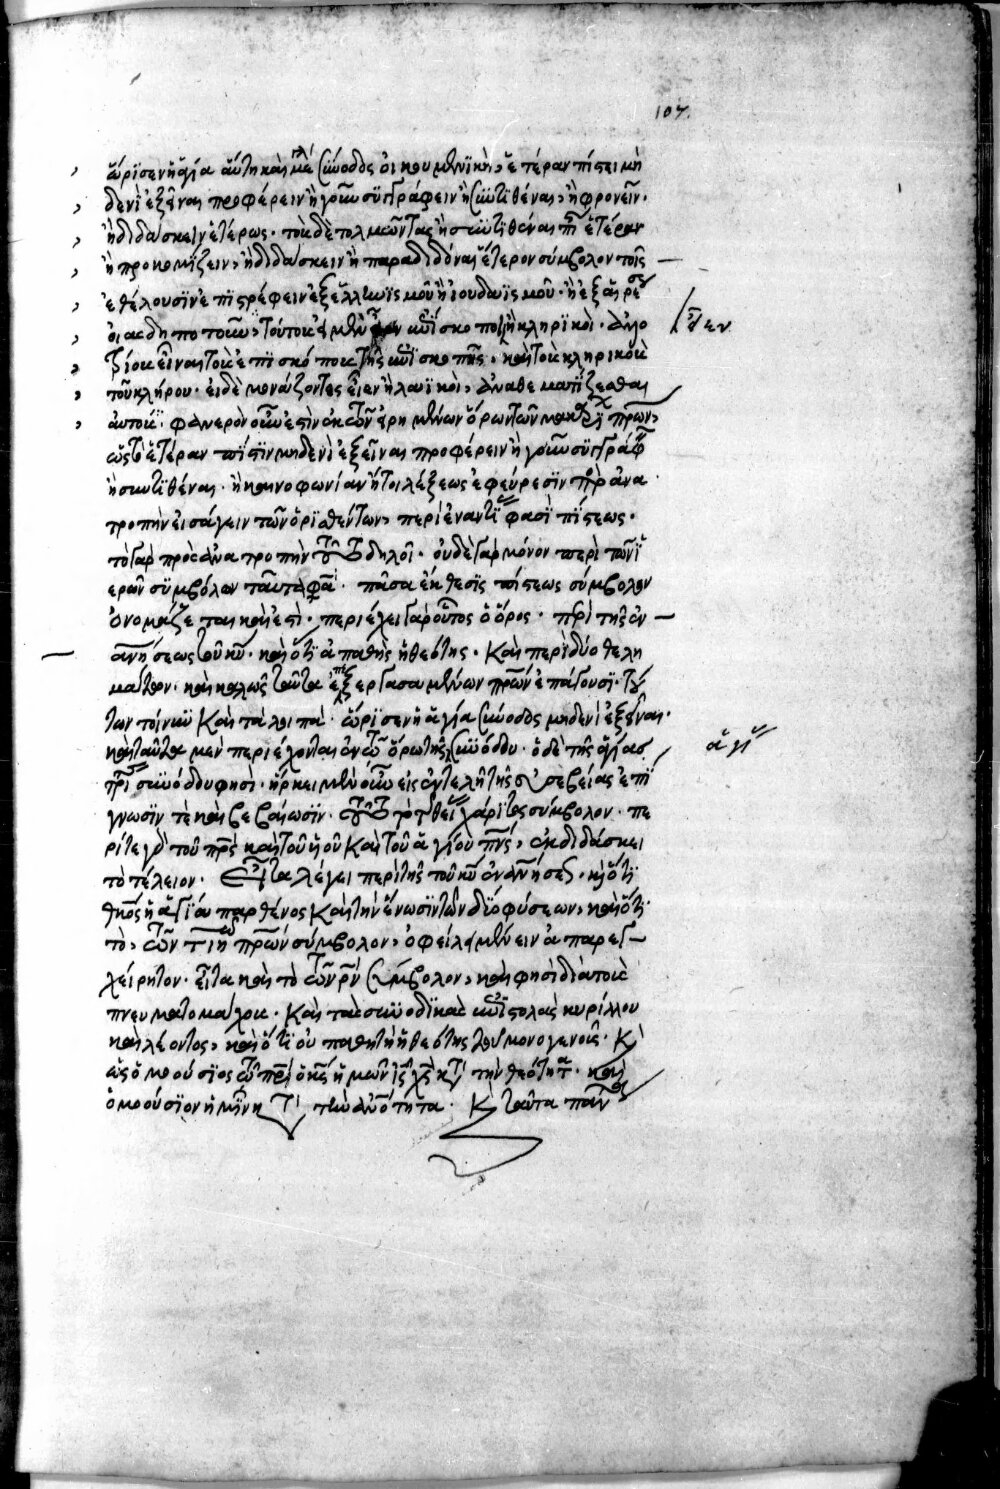 107.
ὥρισεν ἡ ἁγία αὕτη καὶ μεγάλη σύνοδος οἰκουμενικὴ, ἑτέραν πίστει μὴ
δενὶ ἐξεῖναι προφέρειν ἢ γοῦν συγγράφειν ἢ συντιθέναι, ἢ φρονεῖν.
ἢ διδάσκειν ἑτέρως. τοὺς δὲ τολμῶντας ἢ συντιθέναι πίστιν ἑτέραν
ἢ προκομίζειν, ἢ διδάσκειν ἢ παραδιδόναι ἕτερον σύμβολον τοῖς
ἐθέλουσιν ἐπιστρέφειν ἐξ ἑλληνισμοῦ ἢ ἰουδαϊσμοῦ. ἢ ἐξ αἱρέσεως
οἱασδήποτοῦν, τούτους εἰ μὲν ἐπίσκοποι ἢ κληρικοὶ. ἀλλο
τρίους εἶναι τοὺς ἐπισκόπους τῆς ἐπισκοπῆς, καὶ τοὺς κληρικοὺς
τοῦ κλήρου. εἰ δὲ μονάζοντες εἶεν ἢ λαϊκοὶ, ἀναθεματίζεσθαι
αὐτούς. φανερὸν οὖν ἐστὶν ἐκ τῶν εἰρημένων ὅρων τῶν πατέρων,
ὡς τὸ ἑτέραν πίστιν μηδενὶ ἐξεῖναι προφέρειν ἢ γοῦν συγγράφειν
ἢ συντιθέναι. ἢ καινοφωνίαν ἤτοι λέξεως ἐφεύρεσιν πρὸς ἀνα
τροπὴν εἰσάγειν τῶν ὁρισθέντων, περὶ ἐναντίας φασὶ πίστεως.
τὸ γὰρ πρὸς ἀνατροπὴν τοῦτο δηλοῖ. οὐδὲ γὰρ μόνον περὶ τῶν ἱ
ερῶν συμβόλων ταῦτα φασί. πᾶσα ἔκθεσις πίστεως σύμβολον
ὀνομάζεται καὶ ἐστί. περιέχει γὰρ οὗτος ὁ ὅρος. περὶ τῆς ἐν
ανθρωπήσεως τοῦ κυρίου. καὶ ὅτι ἀπαθὴς ἡ θεότης. καὶ περὶ δύο θελη
μάτων. καὶ καλῶς ταῦτα ἐπεξεργασαμένων πατέρων ἐπάγουσι. τού
των τοίνυν καὶ τὰ λοιπά. ὥρισεν ἡ ἁγία σύνοδος μηδενὶ ἐξεῖναι.
καὶ ταῦτα μὲν περιέχονται ἐν τῷ ὅρῳ τῆς συνόδου. ὁ δὲ τῆς ἁγίας
συνόδου φησί. ἤρκει μὲν οὖν εἰς ἐντελῆ τῆς εὐσεβείας ἐπί
γνωσίν τε καὶ βεβαίωσιν. τοῦτο τὸ τῆς θείας χάριτος σύμβολον. πε
ρί τε γὰρ τοῦ πατρὸς καὶ τοῦ υἱοῦ καὶ τοῦ ἁγίου πνεύματος, ἐκδιδάσκει
τὸ τέλειον. εἶτα λέγει περὶ τῆς τοῦ κυρίου ἐνανθρωπήσεως. καὶ ὅτι
θεοτόκος ἡ ἁγία παρθένος καὶ τὴν ἕνωσιν τῶν δύο φύσεων, καὶ ὅτι
τὸ, τῶν τιη πατέρων σύμβολον, ὀφείλει μένειν ἀπαρεγ
χείρητον. εἶτα καὶ τὸ τῶν ρν σύμβολον, καὶ φησὶ διὰ τοὺς
πνευματομάχους. καὶ τὰς συνοδικὰς ἐπιστολὰς κυρίλλου
καὶ λέοντος, καὶ ὅτι οὐ παθητὴ ἡ θεότης τοῦ μονογενοῦς. καὶ
ὡς ὁμοούσιος τῷ πατρὶ ὁ κύριος ἡμῶν ἰησοῦς χριστὸς κατὰ τὴν θεότητα. καὶ
ὁμοούσιον ἡμῖν κατὰ τὴν ἀνθρωπότητα. καὶ ταῦτα πάντα